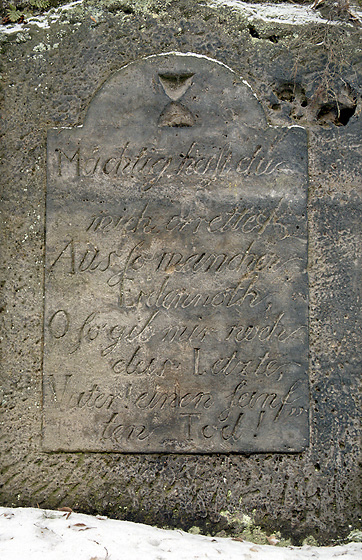 Mächtig hast du
mich errettet,
Aus so mancher
Erdennoth,
O so gib mir noch
das Letzte,
Vater! einen sanf„
ten Tod!